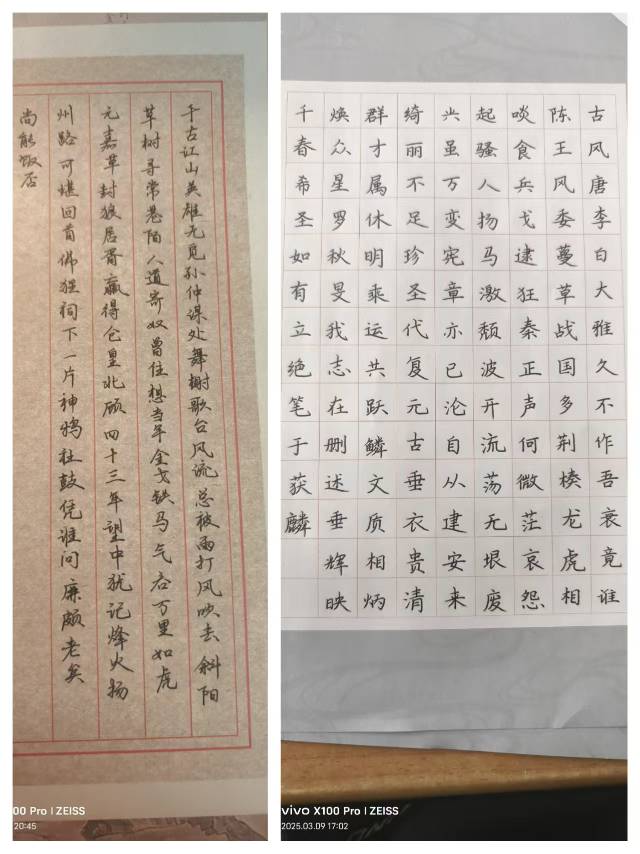 千古江山英雄无觅孙仲谋处舞榭歌台风流总被雨打风吹去斜阳
草树寻常巷陌人道寄奴曾住想当年金戈铁马气吞万里如虎
元嘉草封狼居胥赢得仓皇北顾四十三年望中犹记烽火扬
州路可堪回首佛狸祠下一片神鸦社鼓凭谁问廉颇老矣
尚能饭否
00 Pro | ZEISS
20:45
古风唐李白大雅久不作吾衰竟谁
陈王风委蔓草战国多荆榛龙虎相
啖食兵戈逮狂秦正声何微茫哀怨
起骚人扬马激颓波开流荡无垠废
兴虽万变宪章亦已沦自从建安来
绮丽不足珍圣代复元古垂衣贵清
群才属休明乘运共跃鳞文质相炳
焕众星罗秋旻我志在删述垂辉映
千春希圣如有立绝笔于获麟
vivo X100 Pro | ZEISS
2025.03.09 17:02